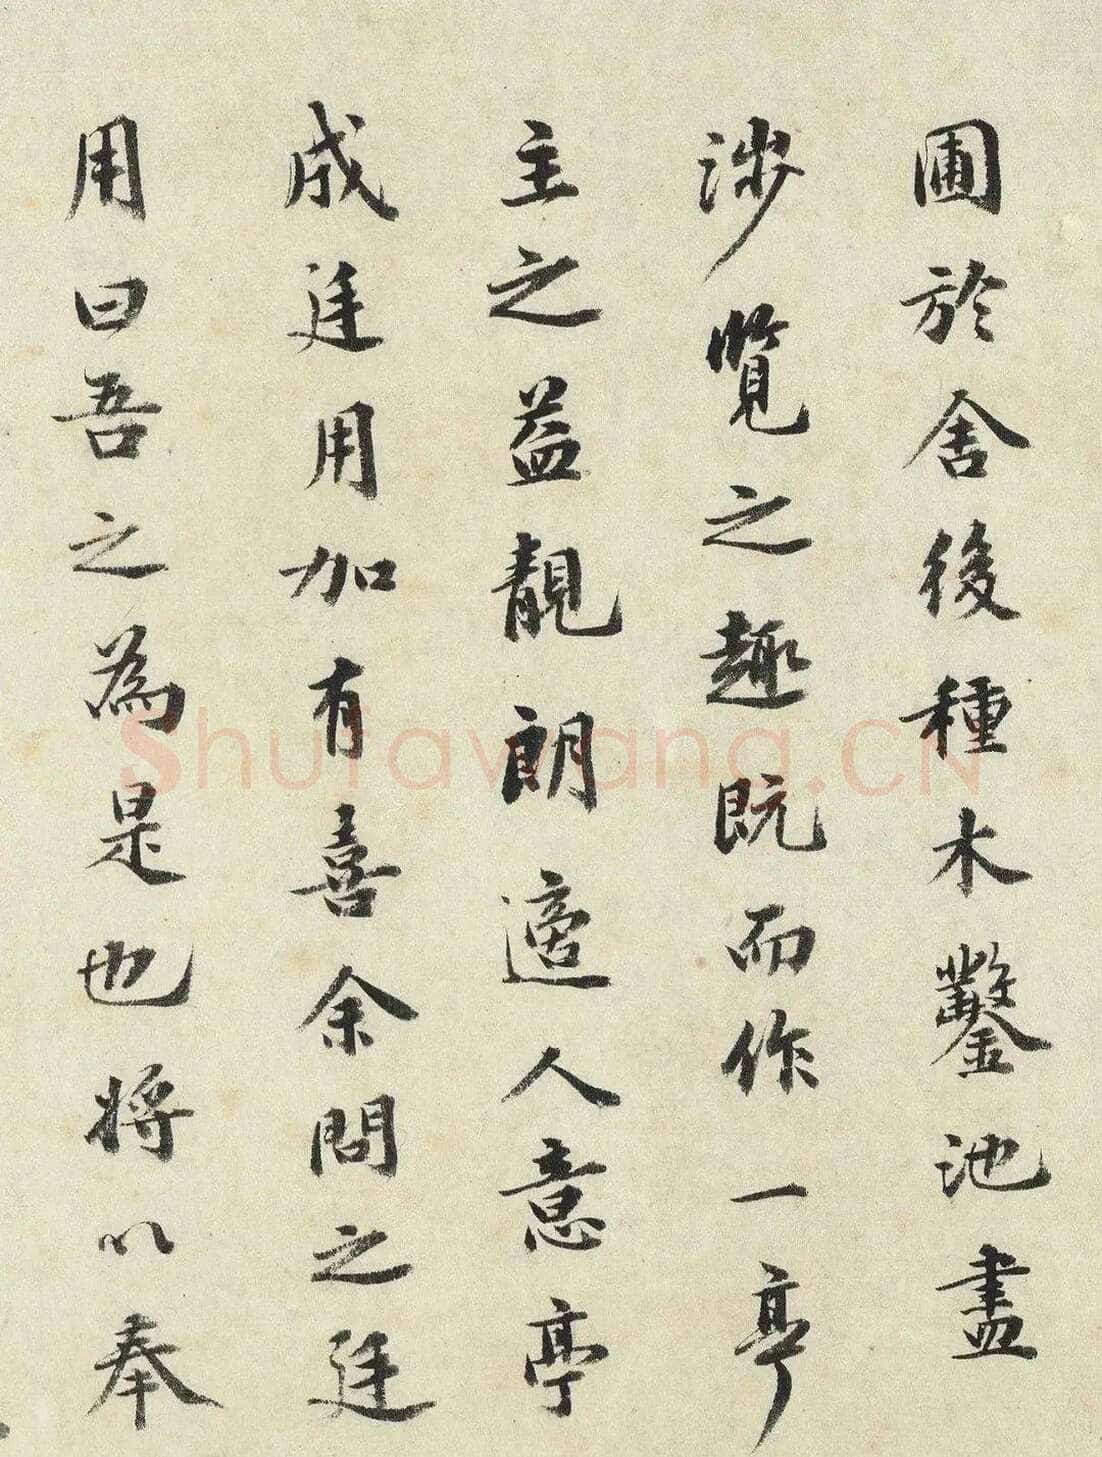 圃於舍後種木鑿池盡
涉覽之趣既而作一亭
主之益靚朗適人意亭
成廷用加有喜余問之廷
用曰吾之為是也將以奉
Shufawang.CN